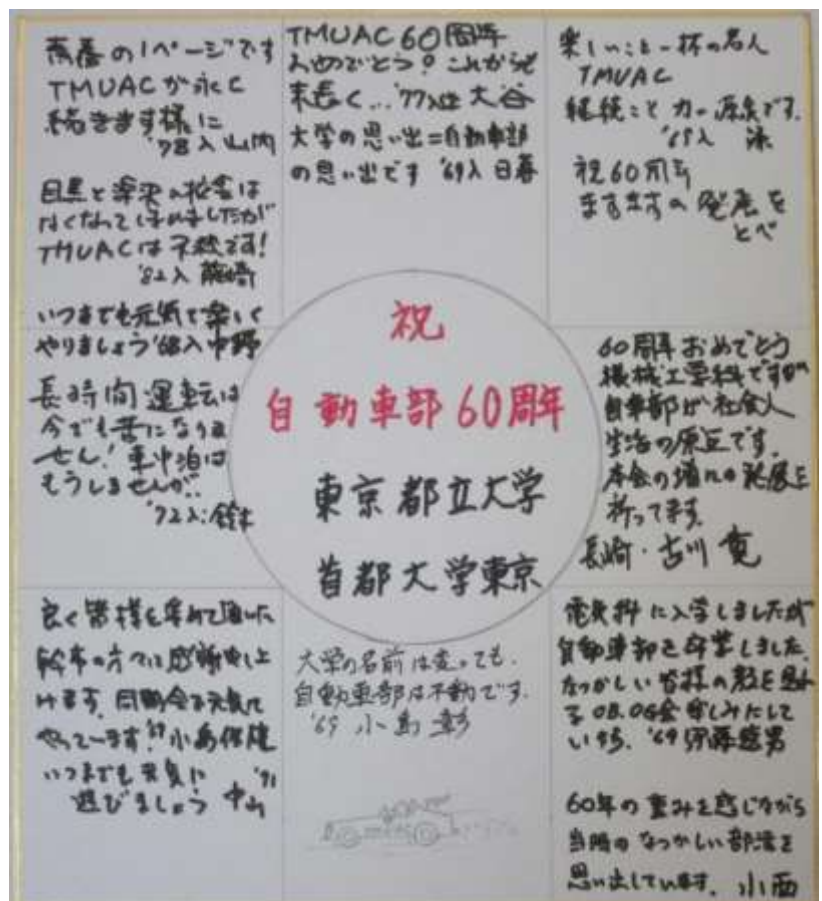 青春の1ページです
TMUACが永く
続きます様に
'78入 山内
目黒と深沢の校舎は
なくなってしまいましたが
TMUACは不滅です!
'82入
いつまでも元気で楽しく
やりましょう '68入 中野
長時間運転は
今でも苦になりま
せん! 車中泊は
もうしませんが..
'72入 鈴木
TMUAC 60周年
おめでとう! これからも
末長く... '77入 大谷
大学の思い出=自動車部
の思い出です '69入 日暮
楽しいこと一杯の名人
TMUAC
継続こそ力の源泉です.
祝60周年
ますますの発展を
祝
自動車部60周年
東京都立大学
首都大学東京
60周年おめでとう
機械工学科ですが
自車部が社会人
生活の原点です.
本会の増々の発展を
祈ってます.
長崎・古川 寛
良く皆様を集めて頂いた
幹事の方々に感謝申し上
げます. 同期会も元気で
やっています. 小島保雄
いつまでも元気に
遊びましょう '71 中山
大学の名前は変っても.
自動車部は不動です.
'69 小島 彰
電気科に入学しましたが
自動車部を卒業しました.
なつかしい皆様の顔を思い
OB.OG会 楽しみにして
いる. '69 伊藤
60年の重みを感じながら
当時のなつかしい部活を
思い出しています. 小西